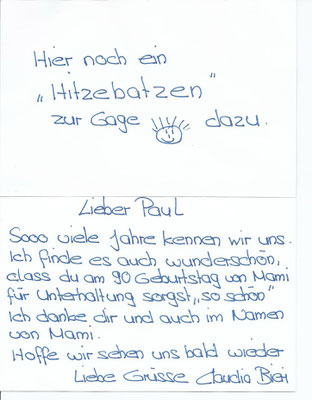 Hier noch ein
„Hitzebatzen"
zur Gage dazu.
Lieber Paul
Sooo viele Jahre kennen wir uns.
Ich finde es auch wunderschön,
dass du am 90 Geburtstag von Mami
für Unterhaltung sorgst „so schön"
Ich danke dir und auch im Namen
von Mami.
Hoffe wir sehen uns bald wieder
Liebe Grüsse Claudia